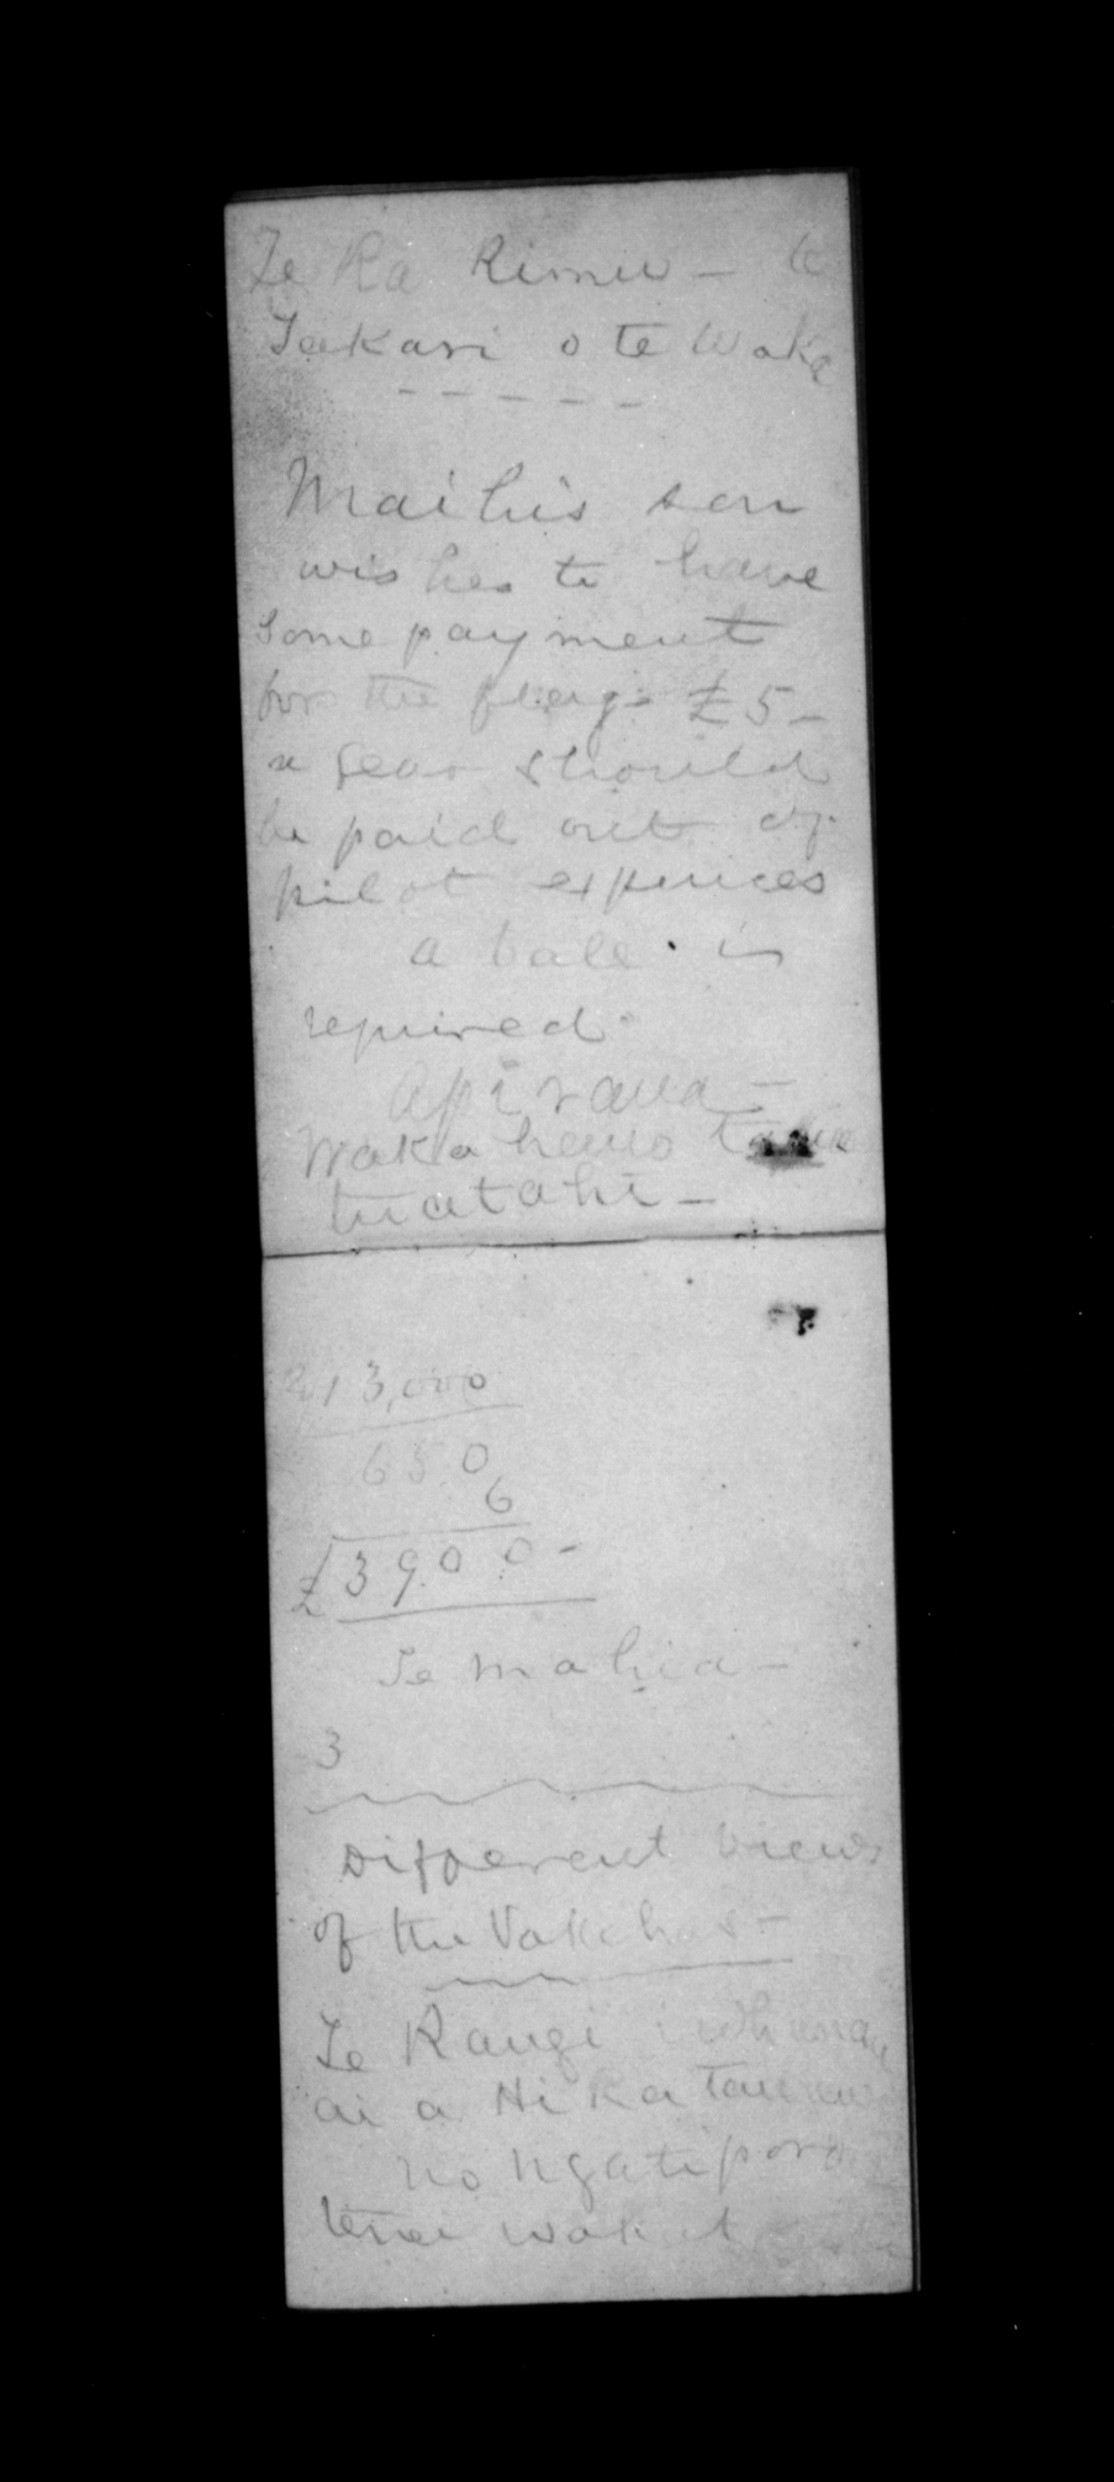 Te Ra Rimu - te
Takari o te Waka
Maihis son
wishes to have
some payment
for the flag - £5 -
a year should
be paid out of
pilot expences
a ball is
required.
Apirana -
Waka hemo
tuatahi -
2/13,000
650
6
£3900 -
Te mahia -
3
Different views
of the Pakehas -
Te Rangi i whanau
ai a Hikatau
no Ngatiporo
tenei